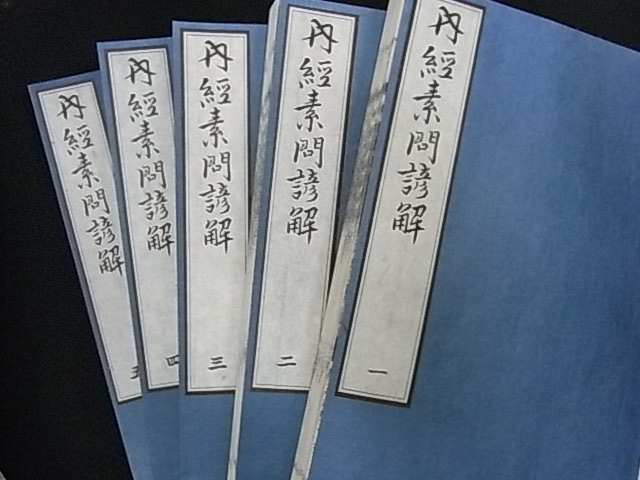 内經素問諺解
一
内經素問諺解
二
内經素問諺解
三
内經素問諺解
四
内經素問諺解
五